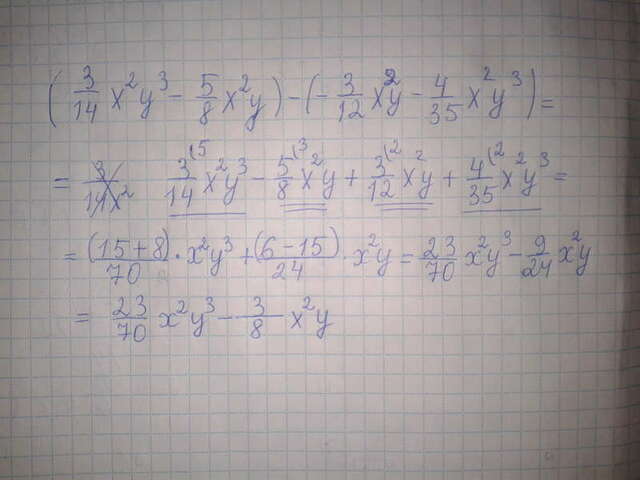 (3/14 x²y³ − 5/8 x²y) − (−3/12 x²y − 4/35 x²y³) =
= 3/14 x² 3(5/14 x²y³ − 5(3/8 x²y + 3(2/12 x²y + 4(2/35 x²y³ =
= (15+8)/70 · x²y³ + (6−15)/24 · x²y = 23/70 x²y³ − 9/24 x²y
= 23/70 x²y³ − 3/8 x²y